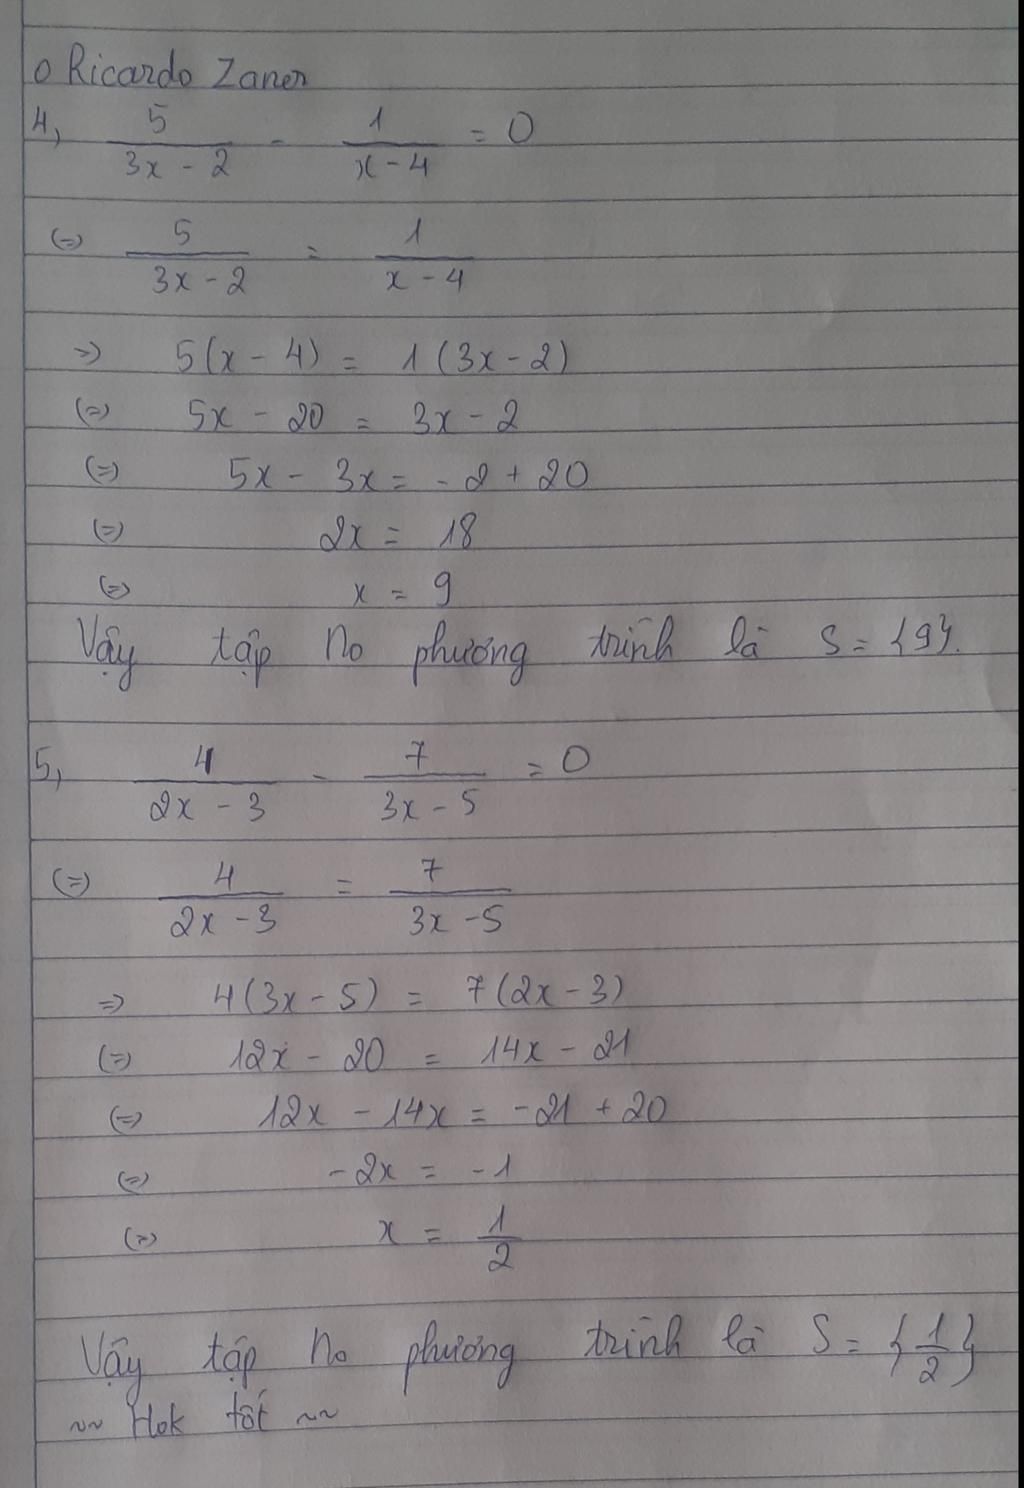 o Ricardo Zaner
4, 5/(3x - 2) - 1/(x - 4) = 0
(=) 5/(3x - 2) = 1/(x - 4)
=) 5(x - 4) = 1(3x - 2)
(=) 5x - 20 = 3x - 2
(=) 5x - 3x = -2 + 20
(=) 2x = 18
(=) x = 9
Vậy tập no phương trình là S = {9}.
5, 4/(2x - 3) - 7/(3x - 5) = 0
(=) 4/(2x - 3) = 7/(3x - 5)
=) 4(3x - 5) = 7(2x - 3)
(=) 12x - 20 = 14x - 21
(=) 12x - 14x = -21 + 20
(=) -2x = -1
(=) x = 1/2
Vậy tập no phương trình là S = {1/2}
~~ Hok tốt ~~